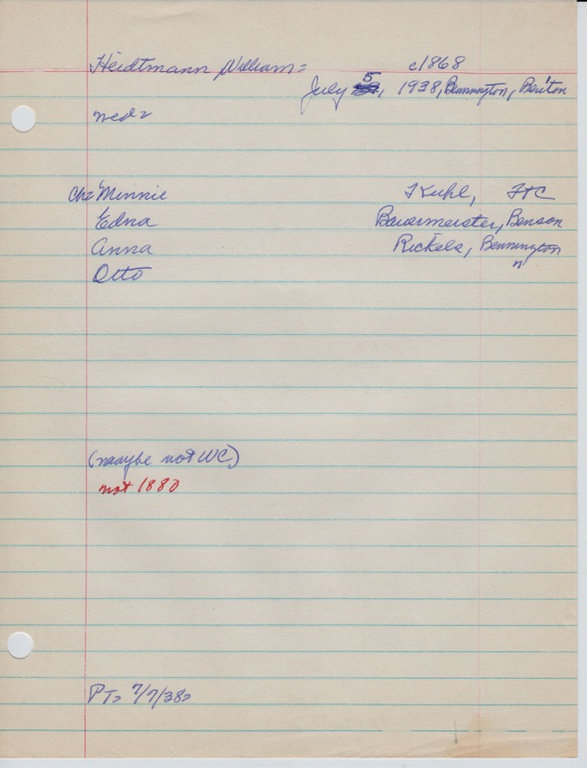 Heidtmann William= c1868
July 5, 1938, Bennington, Benton
med=
Ch= Minnie Kuhl, FtC
Edna Bauermeister, Benson
Anna Rickels, Bennington
Otto "
(maybe not WC)
not 1880
PT= 7/7/38=